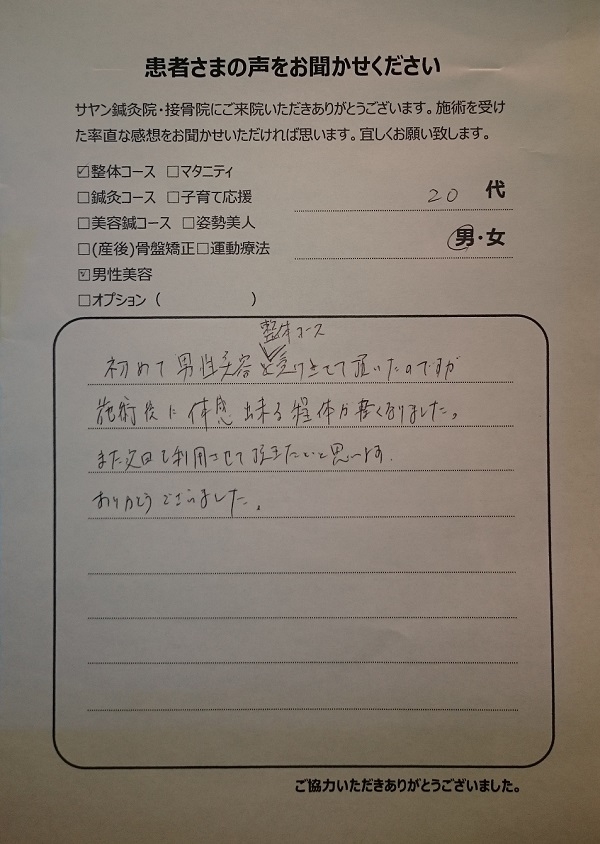 患者さまの声をお聞かせください
サヤン鍼灸院・接骨院にご来院いただきありがとうございます。施術を受け
た率直な感想をお聞かせいただければ思います。宜しくお願い致します。
☑整体コース □マタニティ
□鍼灸コース □子育て応援
20 代
□美容鍼コース □姿勢美人
男・女
□(産後)骨盤矯正□運動療法
☑男性美容
□オプション（ ）
整体コース
初めて男性美容を受けさせて頂いたのですが
施術後に体感出来る程体が軽くなりました。
また次回も利用させて頂きたいと思います。
ありがとうございました。
ご協力いただきありがとうございました。